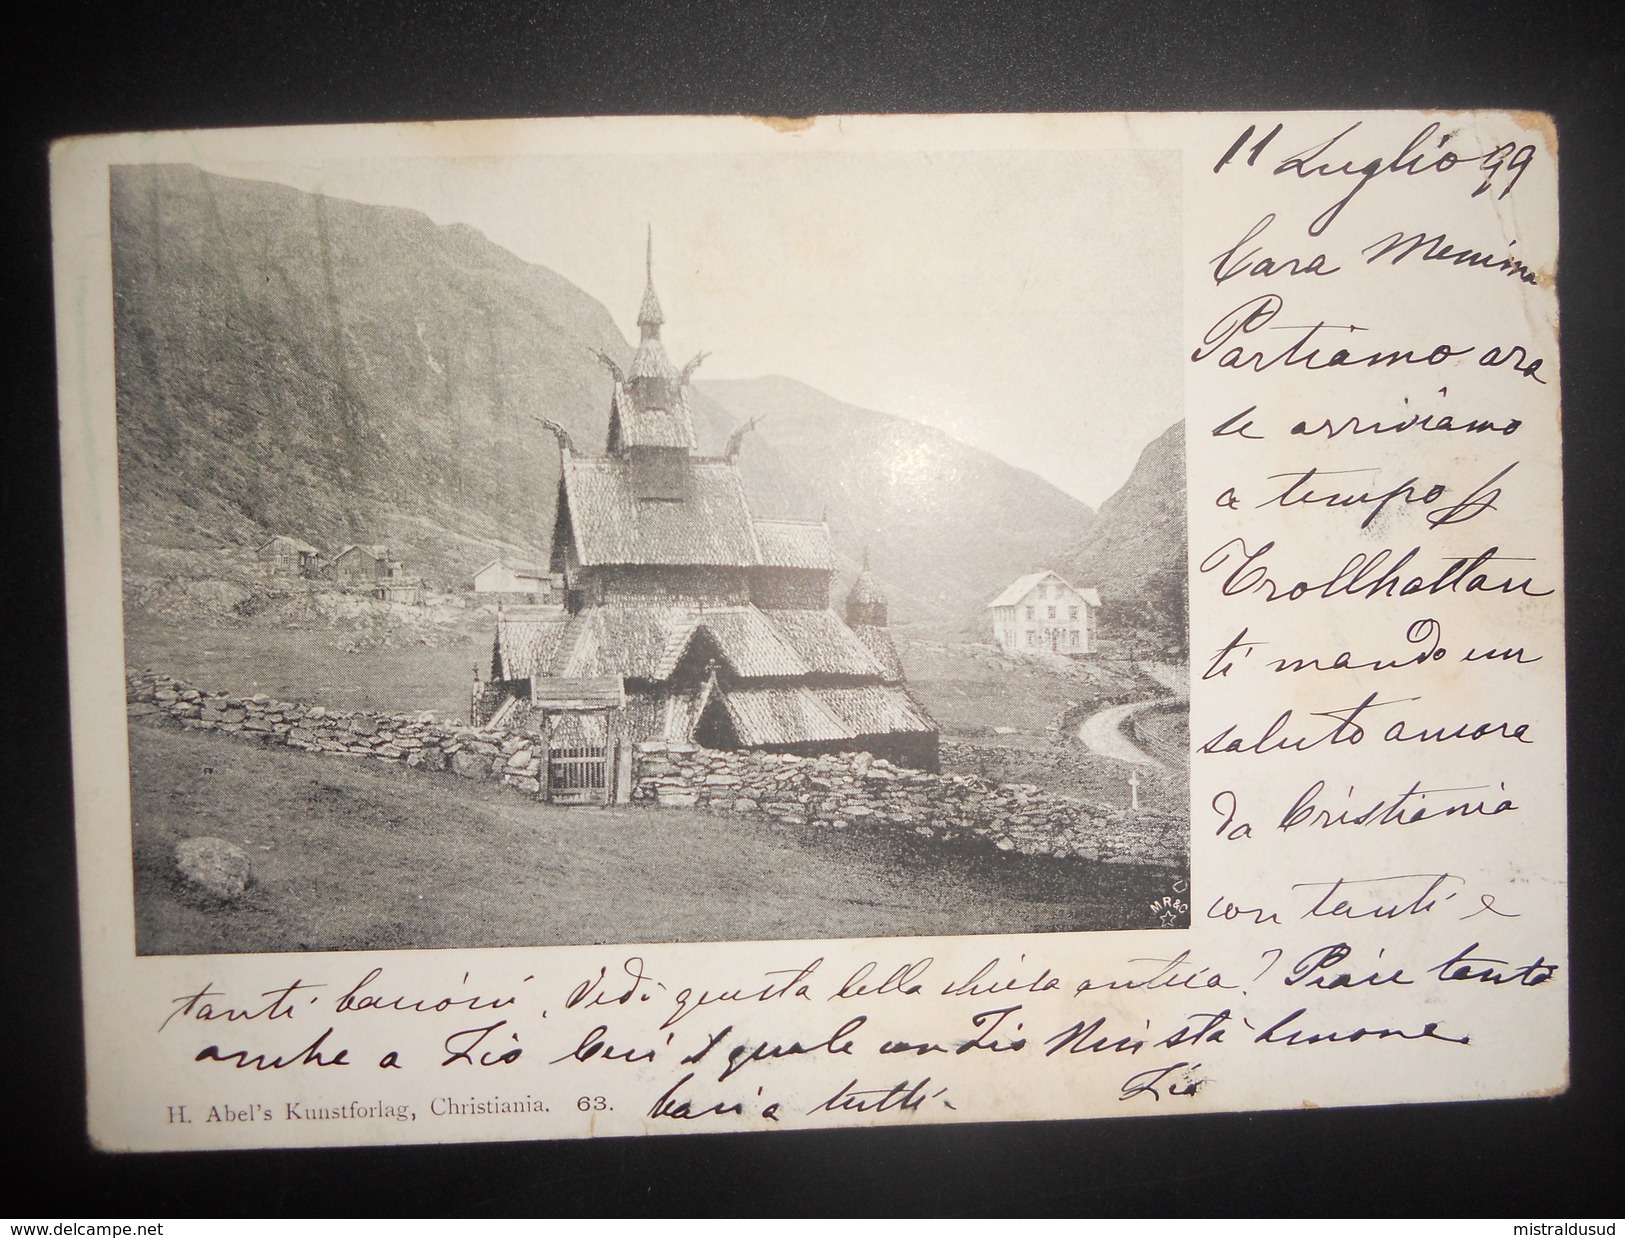 11 Luglio 99
Cara Memima
Partiamo ora
se arriviamo
a tempo p
Trollhattan
ti mando un
saluto ancora
da Cristiania
con tanti e
tanti bacioni. Vedi questa bella chiesa antica? Piace tanto
anche a Zio Ceci il quale con Zio Nini sta benone.
baci a tutti. Zia
H. Abel's Kunstforlag, Christiania. 63.
MR&C
www.delcampe.net
mistraldusud